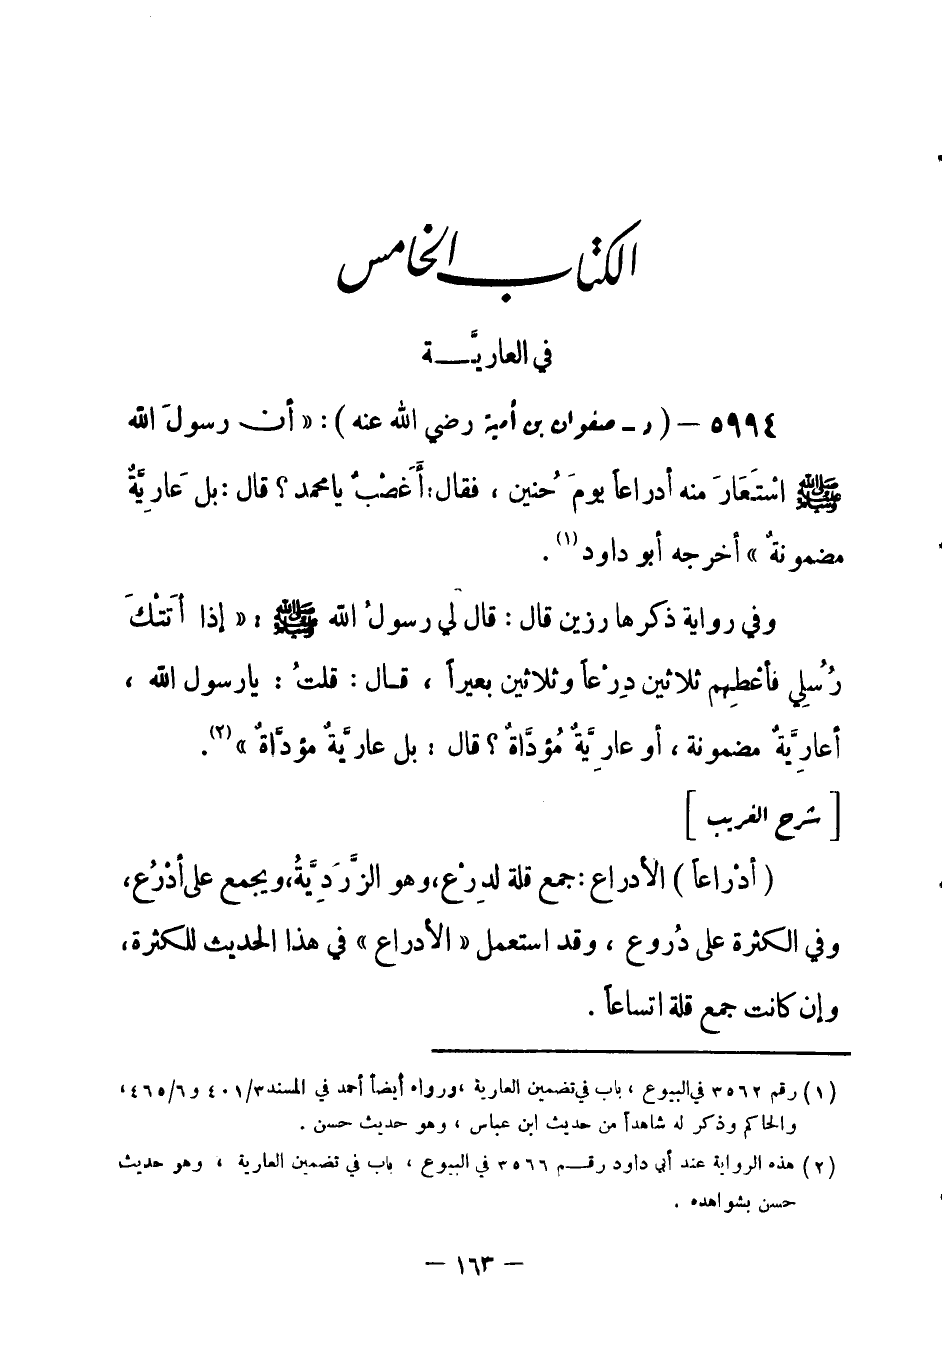 الكتاب الخامس
في العاريَّـــة
٥٩٩٤ – ( د – صفوان بن أمية رضي الله عنه ) : « أن رسولَ الله
ﷺ اسْتَعَارَ منه أدراعاً يومَ حُنين ، فقال : أَغَصْبٌ يا محمد ؟ قال : بل عَاريَّةٌ
مضمونةٌ » أخرجه أبو داود (١) .
وفي رواية ذكرها رزين قال : قال لي رسولُ الله ﷺ : « إذا أتَتْكَ
رُسُلِي فأعْطِهم ثلاثين دِرْعاً وثلاثين بعيراً ، قــال : قلتُ : يا رسول الله ،
أعارِيَّةٌ مضمونة ، أو عارِيَّةٌ مُؤدَّاةٌ ؟ قال : بل عارِيَّةٌ مؤدَّاةٌ » (٢) .
[ شرح الغريب ]
( أدْراعاً ) الأدراع : جمع قلة لدِرْع ، وهو الزَّرَدِيَّةُ ، ويجمع على أدْرُع ،
وفي الكثرة على دُروع ، وقد استعمل « الأدراع » في هذا الحديث للكثرة ،
وإن كانت جمع قلة اتساعاً .
(١) رقم ٣٥٦٢ في البيوع ، باب في تضمين العارية ، ورواه أيضاً أحمد في المسند ٤٠١/٣ و ٤٦٥/٦ ،
والحاكم وذكر له شاهداً من حديث ابن عباس ، وهو حديث حسن .
(٢) هذه الرواية عند أبي داود رقــم ٣٥٦٦ في البيوع ، باب في تضمين العارية ، وهو حديث
حسن بشواهده .
– ١٦٣ –